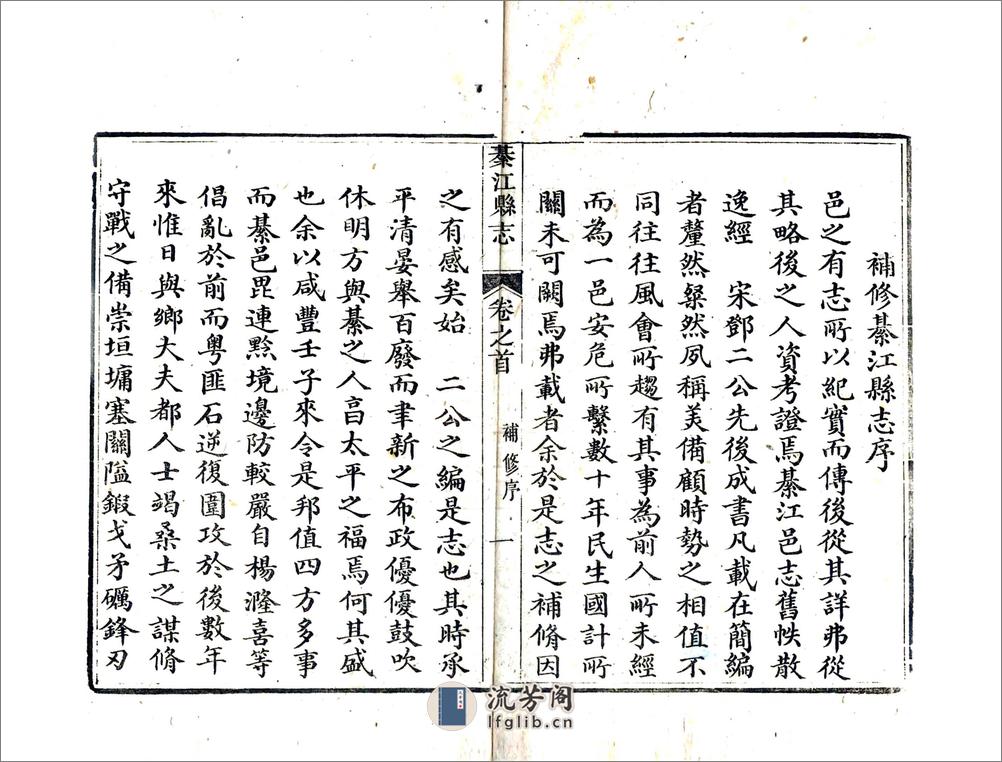 補修綦江縣志序
邑之有志所以紀實而傳後從其詳弗從
其略後之人資考證焉綦江邑志舊帙散
逸經　宋鄧二公先後成書凡載在簡編
者釐然粲然夙稱美備顧時勢之相值不
同往往風會所趨有其事為前人所未經
而為一邑安危所繫數十年民生國計所
關未可闕焉弗載者余於是志之補脩因
綦江縣志　卷之首　補修序　一
之有感矣始　二公之編是志也其時承
平清晏舉百廢而聿新之布政優優鼓吹
休明方與綦之人亯太平之福焉何其盛
也余以咸豐壬子來令是邦值四方多事
而綦邑毘連黔境邊防較嚴自楊漋喜等
倡亂於前而粵匪石逆復圍攻於後數年
來惟日與鄉大夫都人士竭桑土之謀脩
守戰之備崇垣墉塞關隘鍜戈矛礪鋒刃
流芳阁
lfglib.cn